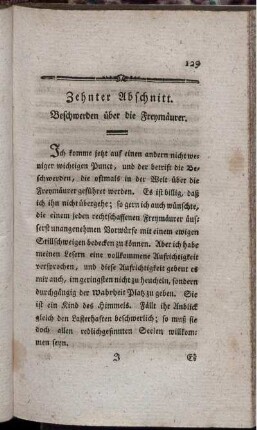 129
Zehnter Abschnitt.
Beschwerden über die Freymäurer.
Ich komme jetzt auf einen andern nicht we-
niger wichtigen Punct, und der betrift die Be-
schwerden, die oftmals in der Welt über die
Freymäurer geführet werden. Es ist billig, daß
ich ihn nicht übergehe; so gern ich auch wünschte,
die einem jeden rechtschaffenen Freymäurer äus-
serst unangenehmen Vorwürfe mit einem ewigen
Stillschweigen bedecken zu können. Aber ich habe
meinen Lesern eine vollkommene Aufrichtigkeit
versprochen, und diese Aufrichtigkeit gebeut es
mir auch, im geringsten nicht zu heucheln, sondern
durchgängig der Wahrheit Platz zu geben. Sie
ist ein Kind des Himmels. Fällt ihr Anblik
gleich den Lasterhaften beschwerlich; so muß sie
doch allen redlichgesinnten Seelen willkom-
men seyn.
J Es